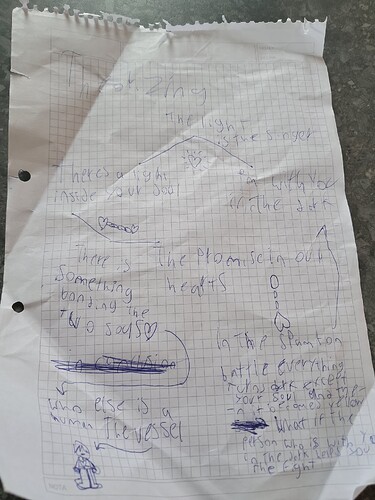 Theorizing
The light
is the singer
There's a light
inside your soul
with you
in the dark
There is
something
bonding the
two souls
The Promise in our
hearts
In the Spamton
battle everything
turns dark except
your soul and the
it becomes yellow
What if the
person who is with you
in the dark
the light
who else is a
human The vessel